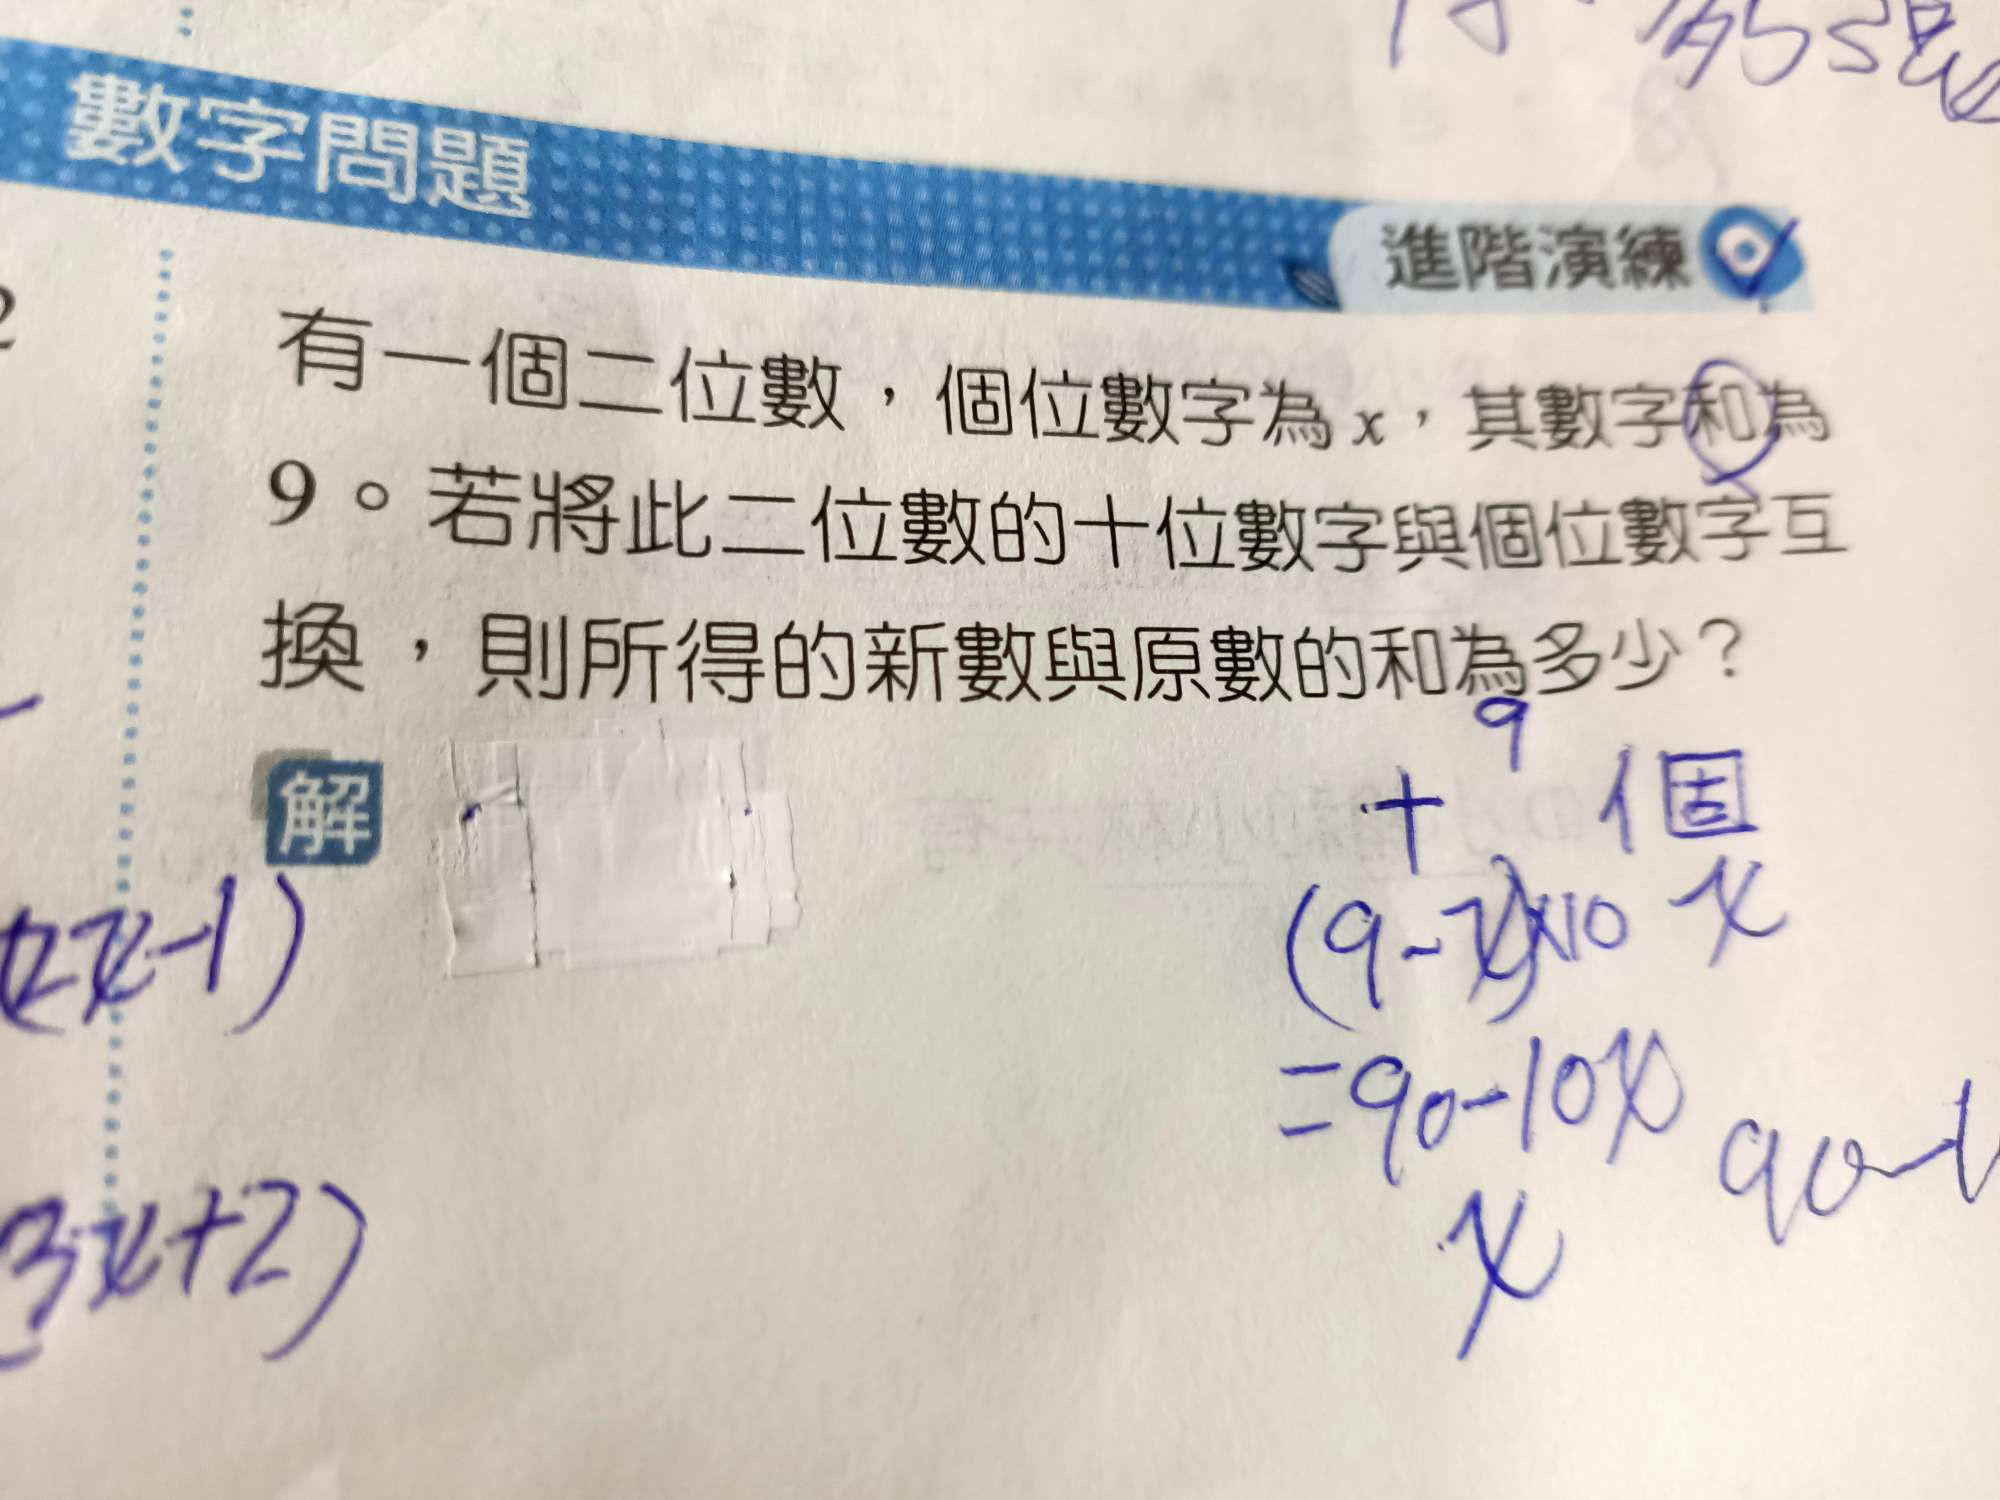 數字問題
進階演練
有一個二位數，個位數字為 x，其數字和為
9。若將此二位數的十位數字與個位數字互
換，則所得的新數與原數的和為多少？
解
9
十 個
(9-x)×10 x
=90-10x
90-1
x
x-1)
3x+2)
2